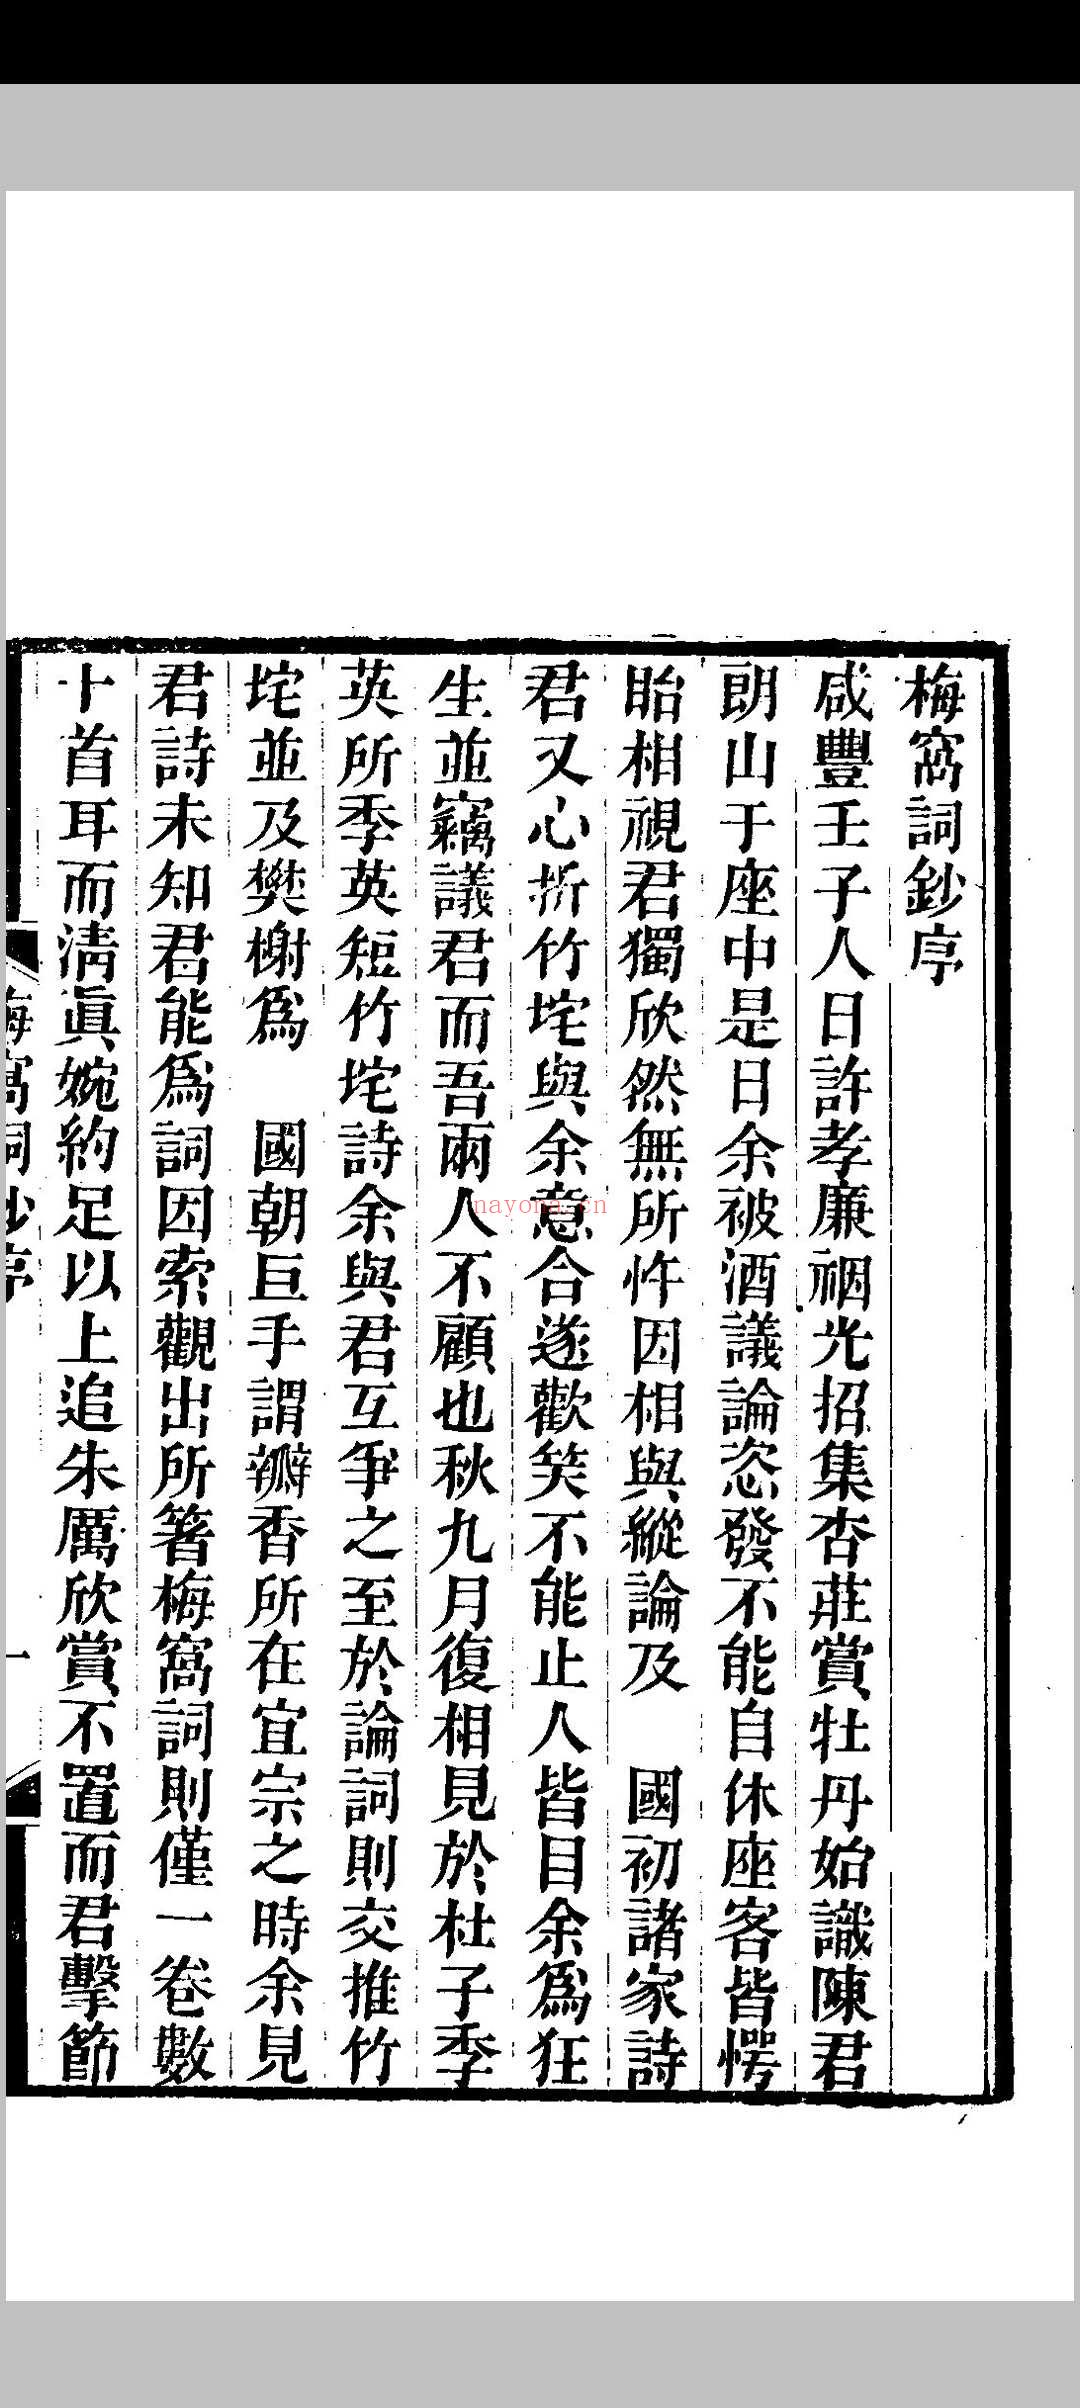 梅窩詞鈔序
咸豐壬子人日許孝廉祵光招集杏莊賞牡丹始識陳君
朗山于座中是日余被酒議論恣發不能自休座客皆愕
眙相視君獨欣然無所忤因相與縱論及　國初諸家詩
君又心折竹垞與余意合遂歡笑不能止人皆目余為狂
生並竊議君而吾兩人不顧也秋九月復相見於杜子季
英所季英短竹垞詩余與君互爭之至於論詞則交推竹
垞並及樊榭爲　國朝巨手謂瓣香所在宜宗之時余見
君詩未知君能爲詞因索觀出所箸梅窩詞則僅一卷數
十首耳而淸眞婉約足以上追朱厲欣賞不置而君擊節
梅窩詞鈔序
一
nayona.cn